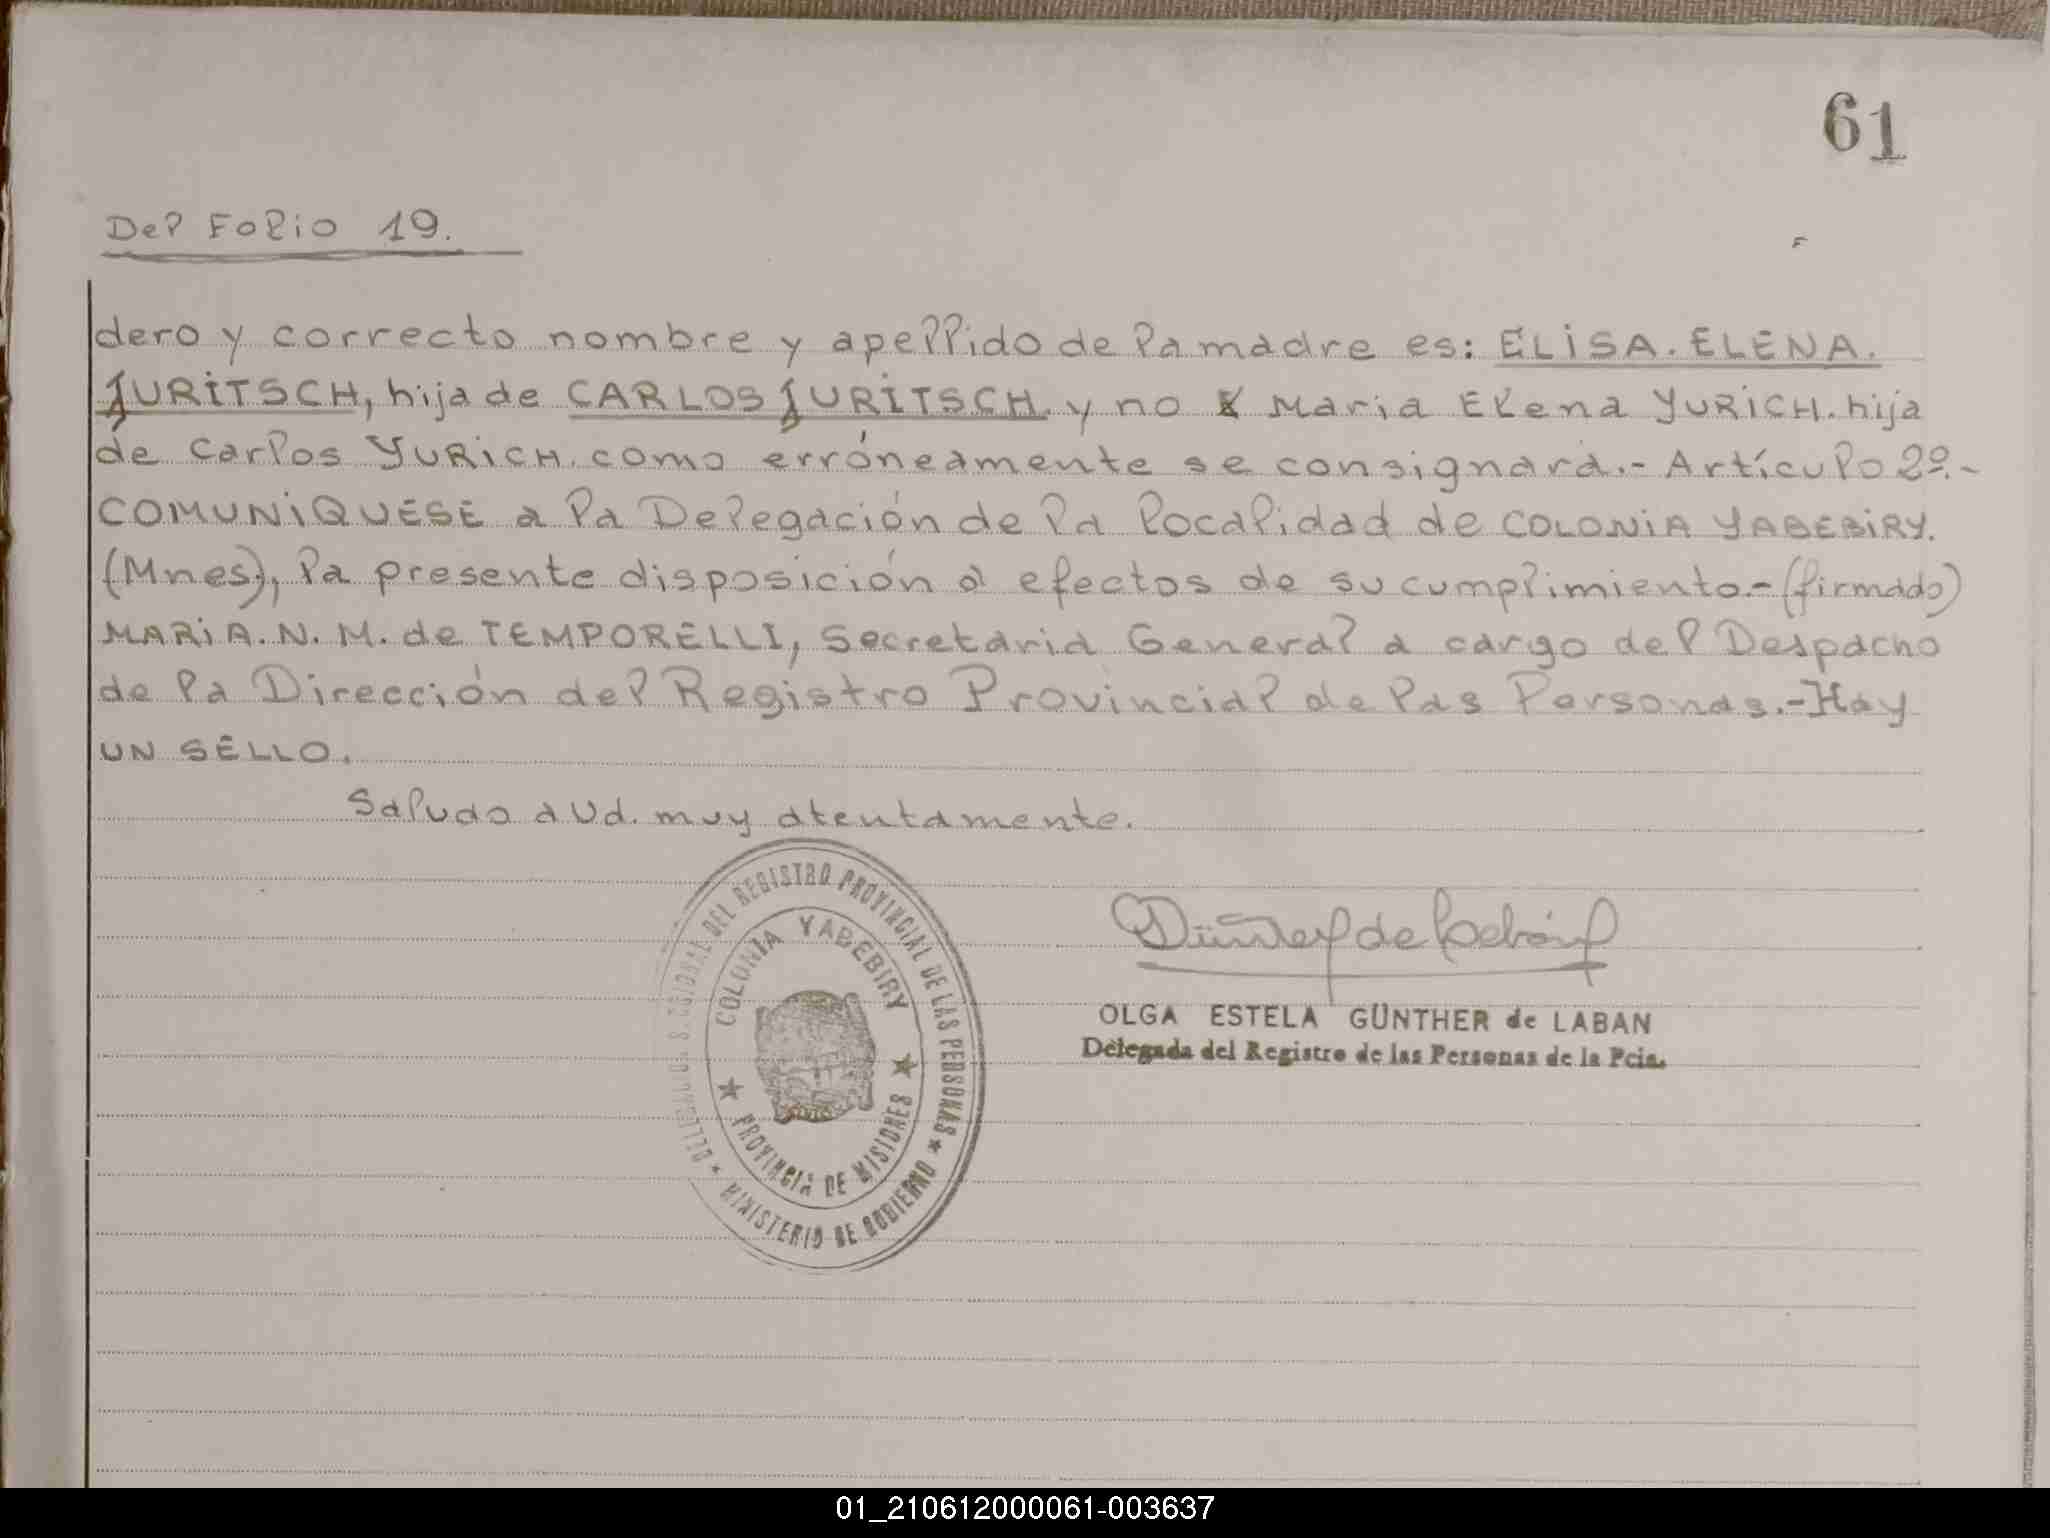 61
Del Folio 19.
dero y correcto nombre y apellido de la madre es: ELISA. ELENA.
JURITSCH, hija de CARLOS JURITSCH. y no Maria Elena YURICH. hija
de Carlos YURICH. como erróneamente se consignará.- Artículo 2º.-
COMUNIQUESE a la Delegación de la localidad de COLONIA YABEBIRY.
(Mnes), la presente disposición a efectos de su cumplimiento.- (firmado)
MARIA. N. M. de TEMPORELLI, Secretaria General a cargo del Despacho
de la Dirección del Registro Provincial de las Personas.- Hay
UN SELLO.
Saludo a Ud. muy atentamente.
REGIONAL DEL REGISTRO PROVINCIAL DE LAS PERSONAS
COLONIA YABEBIRY
PROVINCIA DE MISIONES
MINISTERIO DE GOBIERNO
Günther de Labán
OLGA ESTELA GÜNTHER de LABAN
Delegada del Registro de las Personas de la Pcia.
01_210612000061-003637